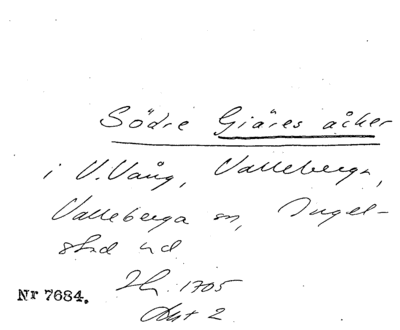 Södre Giäres åcker
i V. Vång, Valleberga,
Valleberga sn, Ingel-
stad hd
1705
Nr 7684.
Akt 2